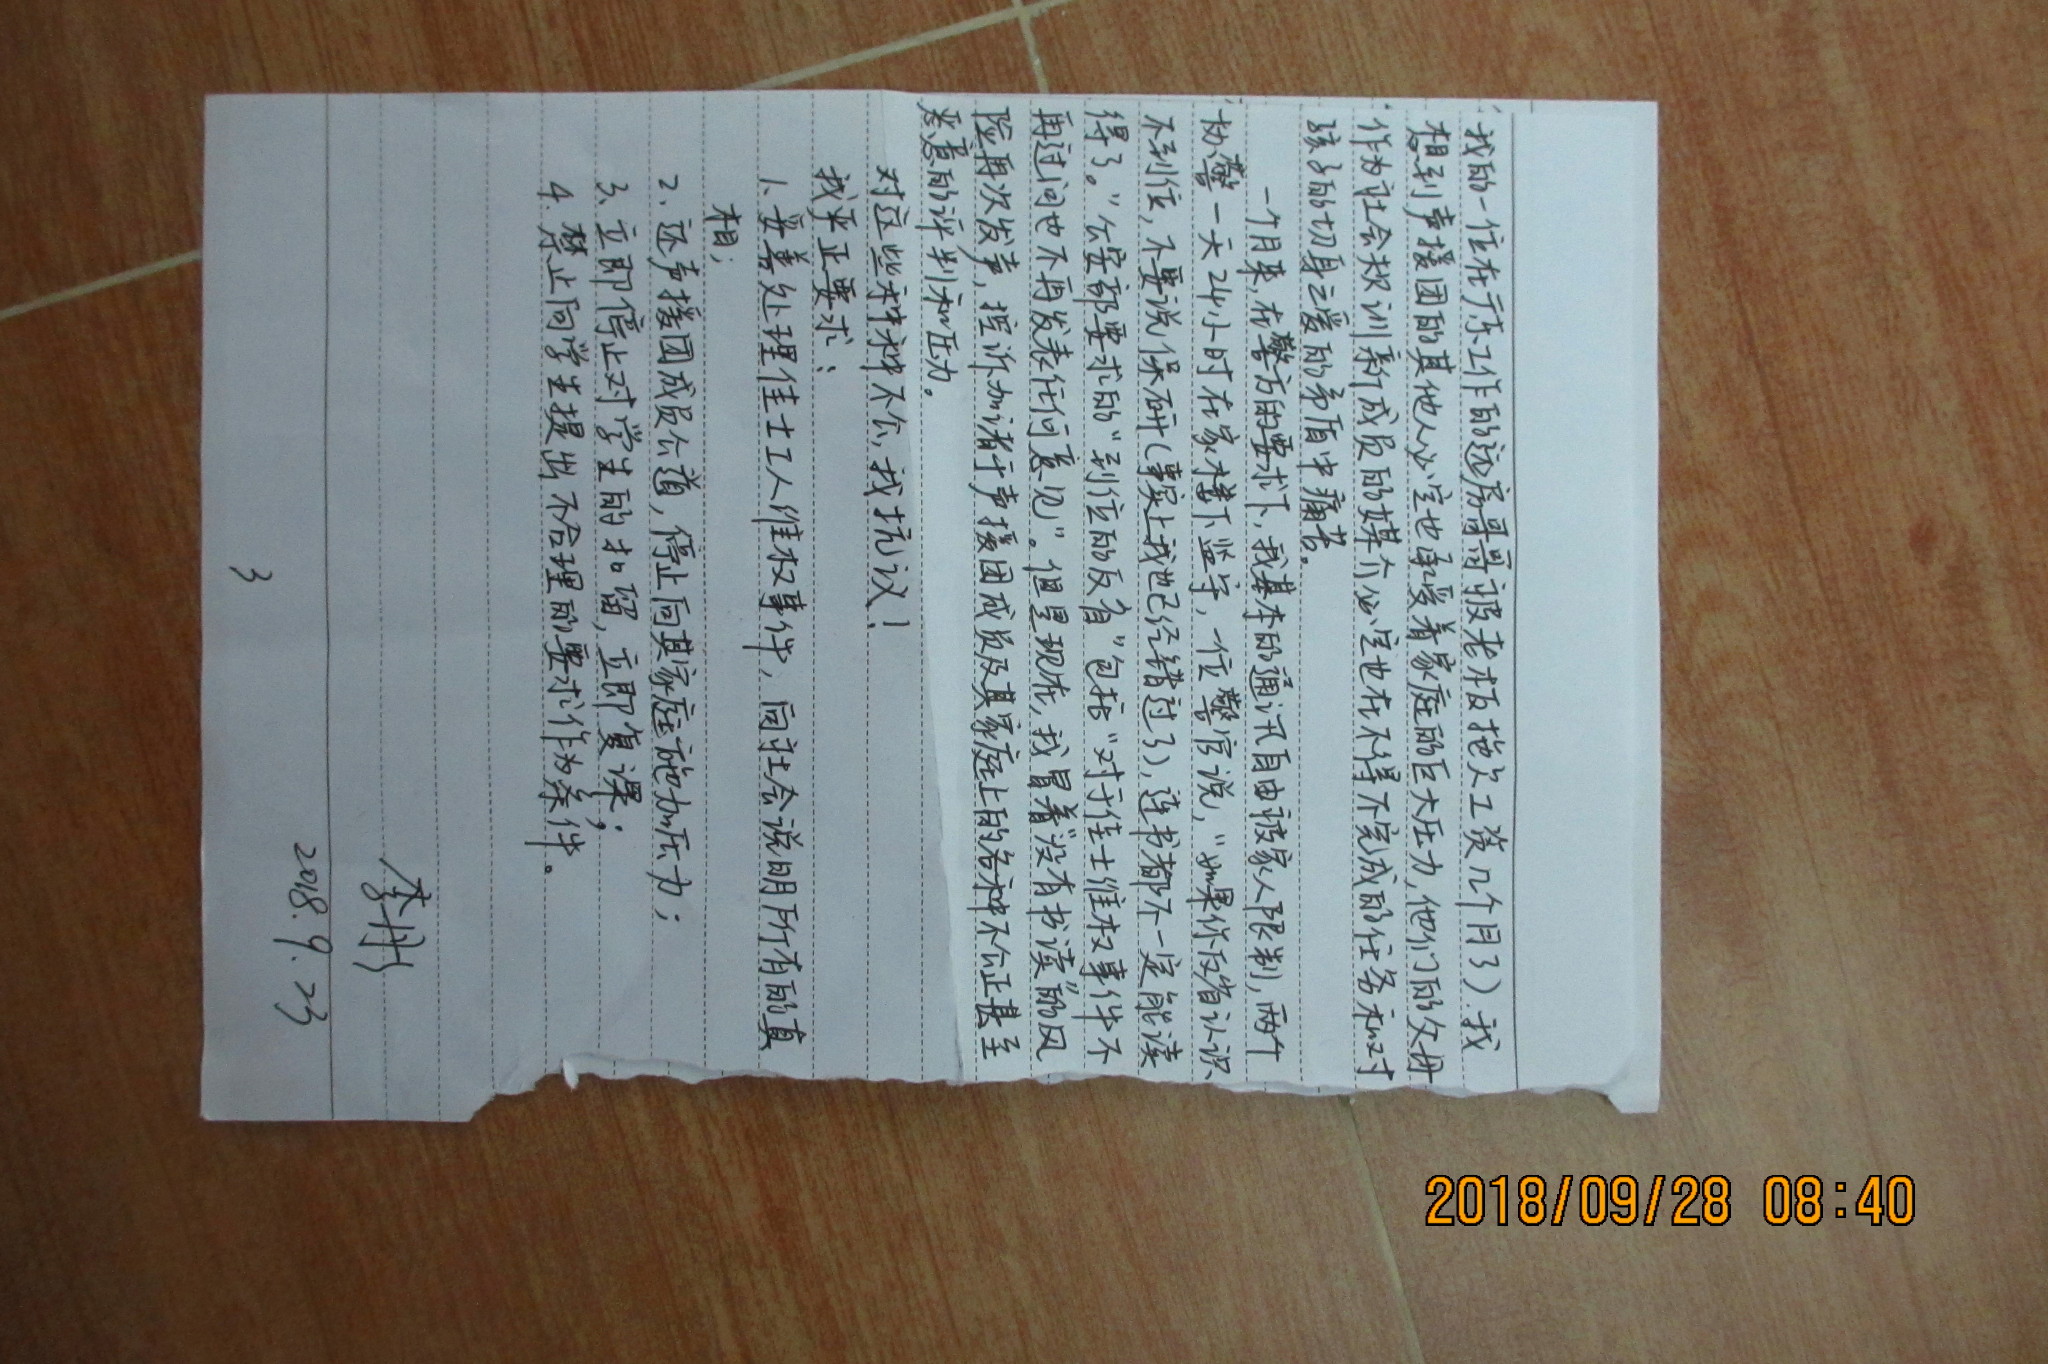 我的一位在广东工作的远房哥哥被老板拖欠工资几个月了）.我
想到声援团的其他人必定也承受着家庭的巨大压力，他们的父母
作为社会规训新成员的媒介必定也在不得不完成的任务和对
孩子的切身之爱的矛盾中痛苦。
一个月来，在警方的要求下，我基本的通讯自由被家人限制，两个
协警一天24小时在家楼下监守，一位警官说，“如果你反省认识
不到位，不要说保研（事实上我也已经错过了），连书都不一定能读
得了。”公安部要求的“到位的反省”包括“对于佳士维权事件不
再过问也不再发表任何意见”。但是现在，我冒着“没有书读”的风
险再次发声，控诉加诸于声援团成员及其家庭上的各种不公正甚至
恶意的评判和压力。
对这些种种不公，我抗议！
我严正要求：
1. 妥善处理佳士工人维权事件，向社会说明所有的真
相；
2. 还声援团成员公道，停止向其家庭施加压力；
3. 立即停止对学生的扣留，立即复课；
4. 禁止向学生提出不合理的要求作为条件。
2018.9.23
3
2018/09/28 08:40